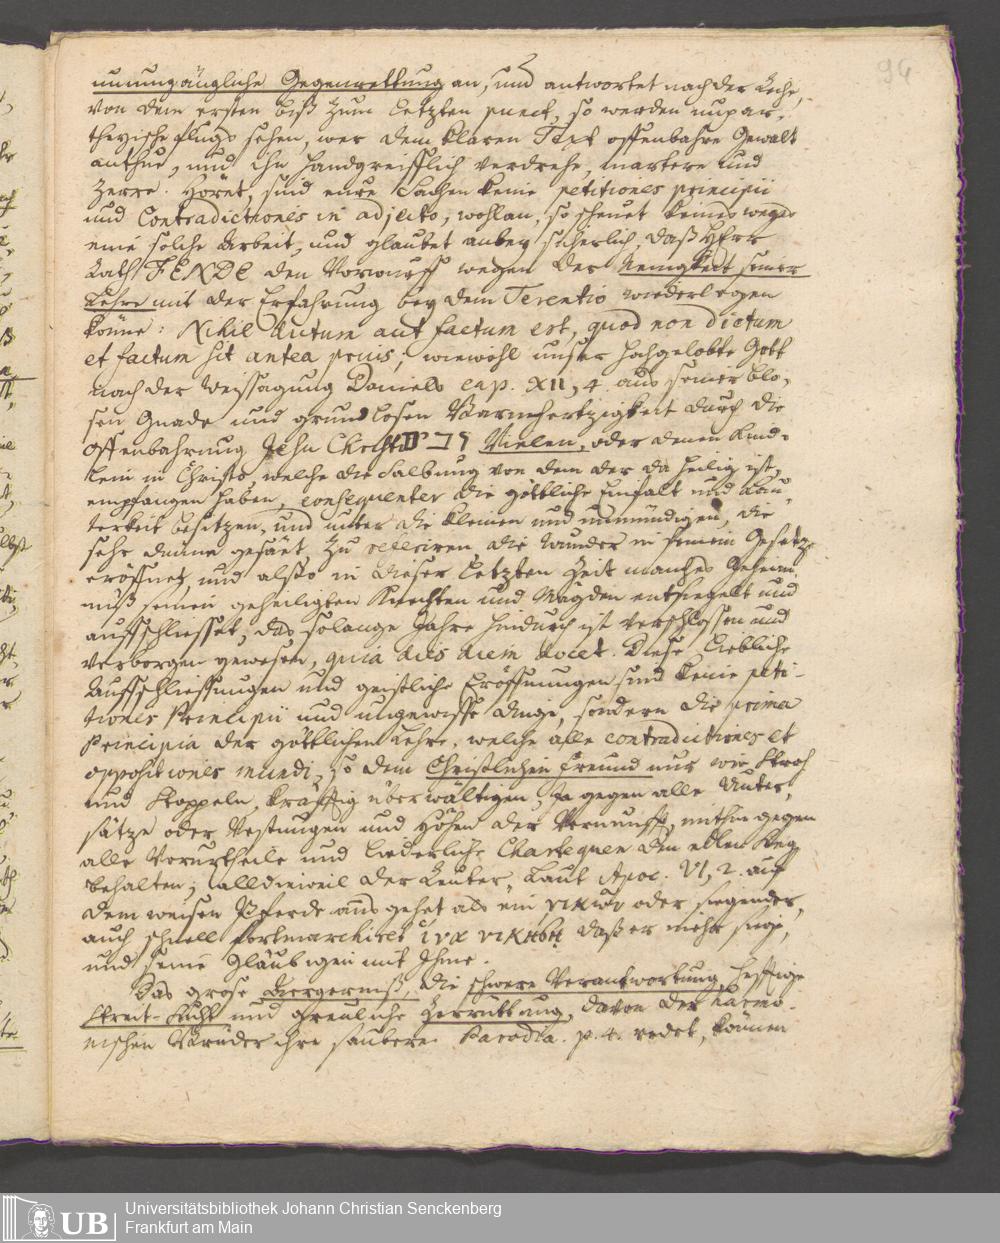 94
unumgängliche Gegenrettung an, und antwortet nach der Reihe,
von dem ersten biß zum letzten punct, so werden unpar-
theyische flugs sehen, wer dem klaren Text offenbahre Gewalt
anthue, und ihn handgreifflich verdrehe, martere und
zerre. Höret, sind eure Sachen keine petitiones principii
und Contradictiones in adjecto, wohlan, so scheuet keines weges
eine solche Arbeit, und glaubet anbey sicherlich, daß Herr
Rath FENDE den Vorwurff wegen der Neuigkeit seiner
Lehre mit der Erfahrung bey dem Terentio wiederlegen
könne: Nihil dictum aut factum est, quod non dictum
et factum sit antea prius; wiewohl unser hochgelobte Gott
nach der Weissagung Daniels cap. XII, 4. aus seiner blo-
sen Gnade und grundlosen Barmhertzigkeit durch die
Offenbahrung Jesu Christi רבים Vielen, oder denen Kind-
lein in Christo, welche die Salbung von dem der da heilig ist,
empfangen haben, consequenter die göttliche Einfalt und Lau-
terkeit besitzen, und unter die kleinen und unmündigen, die
sehr dünne gesäet, zu referiren, die Wunder in seinem Gesetze
eröffnet, und alßo in dieser letzten Zeit manches Geheim-
niß seinen geheiligten Knechten und Mägden entsiegelt und
auffschliesset, das solange Jahre hindurch ist verschlossen und
verborgen gewesen, quia dies diem docet. Diese liebliche
Auffschliessungen und geistliche Eröffnungen sind keine peti-
tiones Principii und ungewisse dinge, sondern die prima
Principia der göttlichen Lehre, welche alle contradictiones et
oppositiones mundi, so dem Christlichen Freund nur wie Stroh
und Stoppeln, kräfftig überwältigen, ja gegen alle
sätze oder Vestungen und Höhen der Vernunfft, mithin gegen
alle Vorurtheile und liederliche Chartequen den edlen Sieg
behalten; alldieweil der Reuter, laut Apoc. VI, 2. auf
dem weisen Pferde ausgehet als ein νικῶν oder siegender,
auch schnell fortmarchiret ἵνα νικήσῃ daß er mehr siege,
und seine Gläubigen mit Ihme.
Das grose Aergerniß, die schwere Verantwortung, hefftige
Streit-Sucht und greuliche Zerrüttung, davon der harmo-
nischen Brüder ihre saubere Parodia. p. 4. redet, können
UB
Universitätsbibliothek Johann Christian Senckenberg
Frankfurt am Main